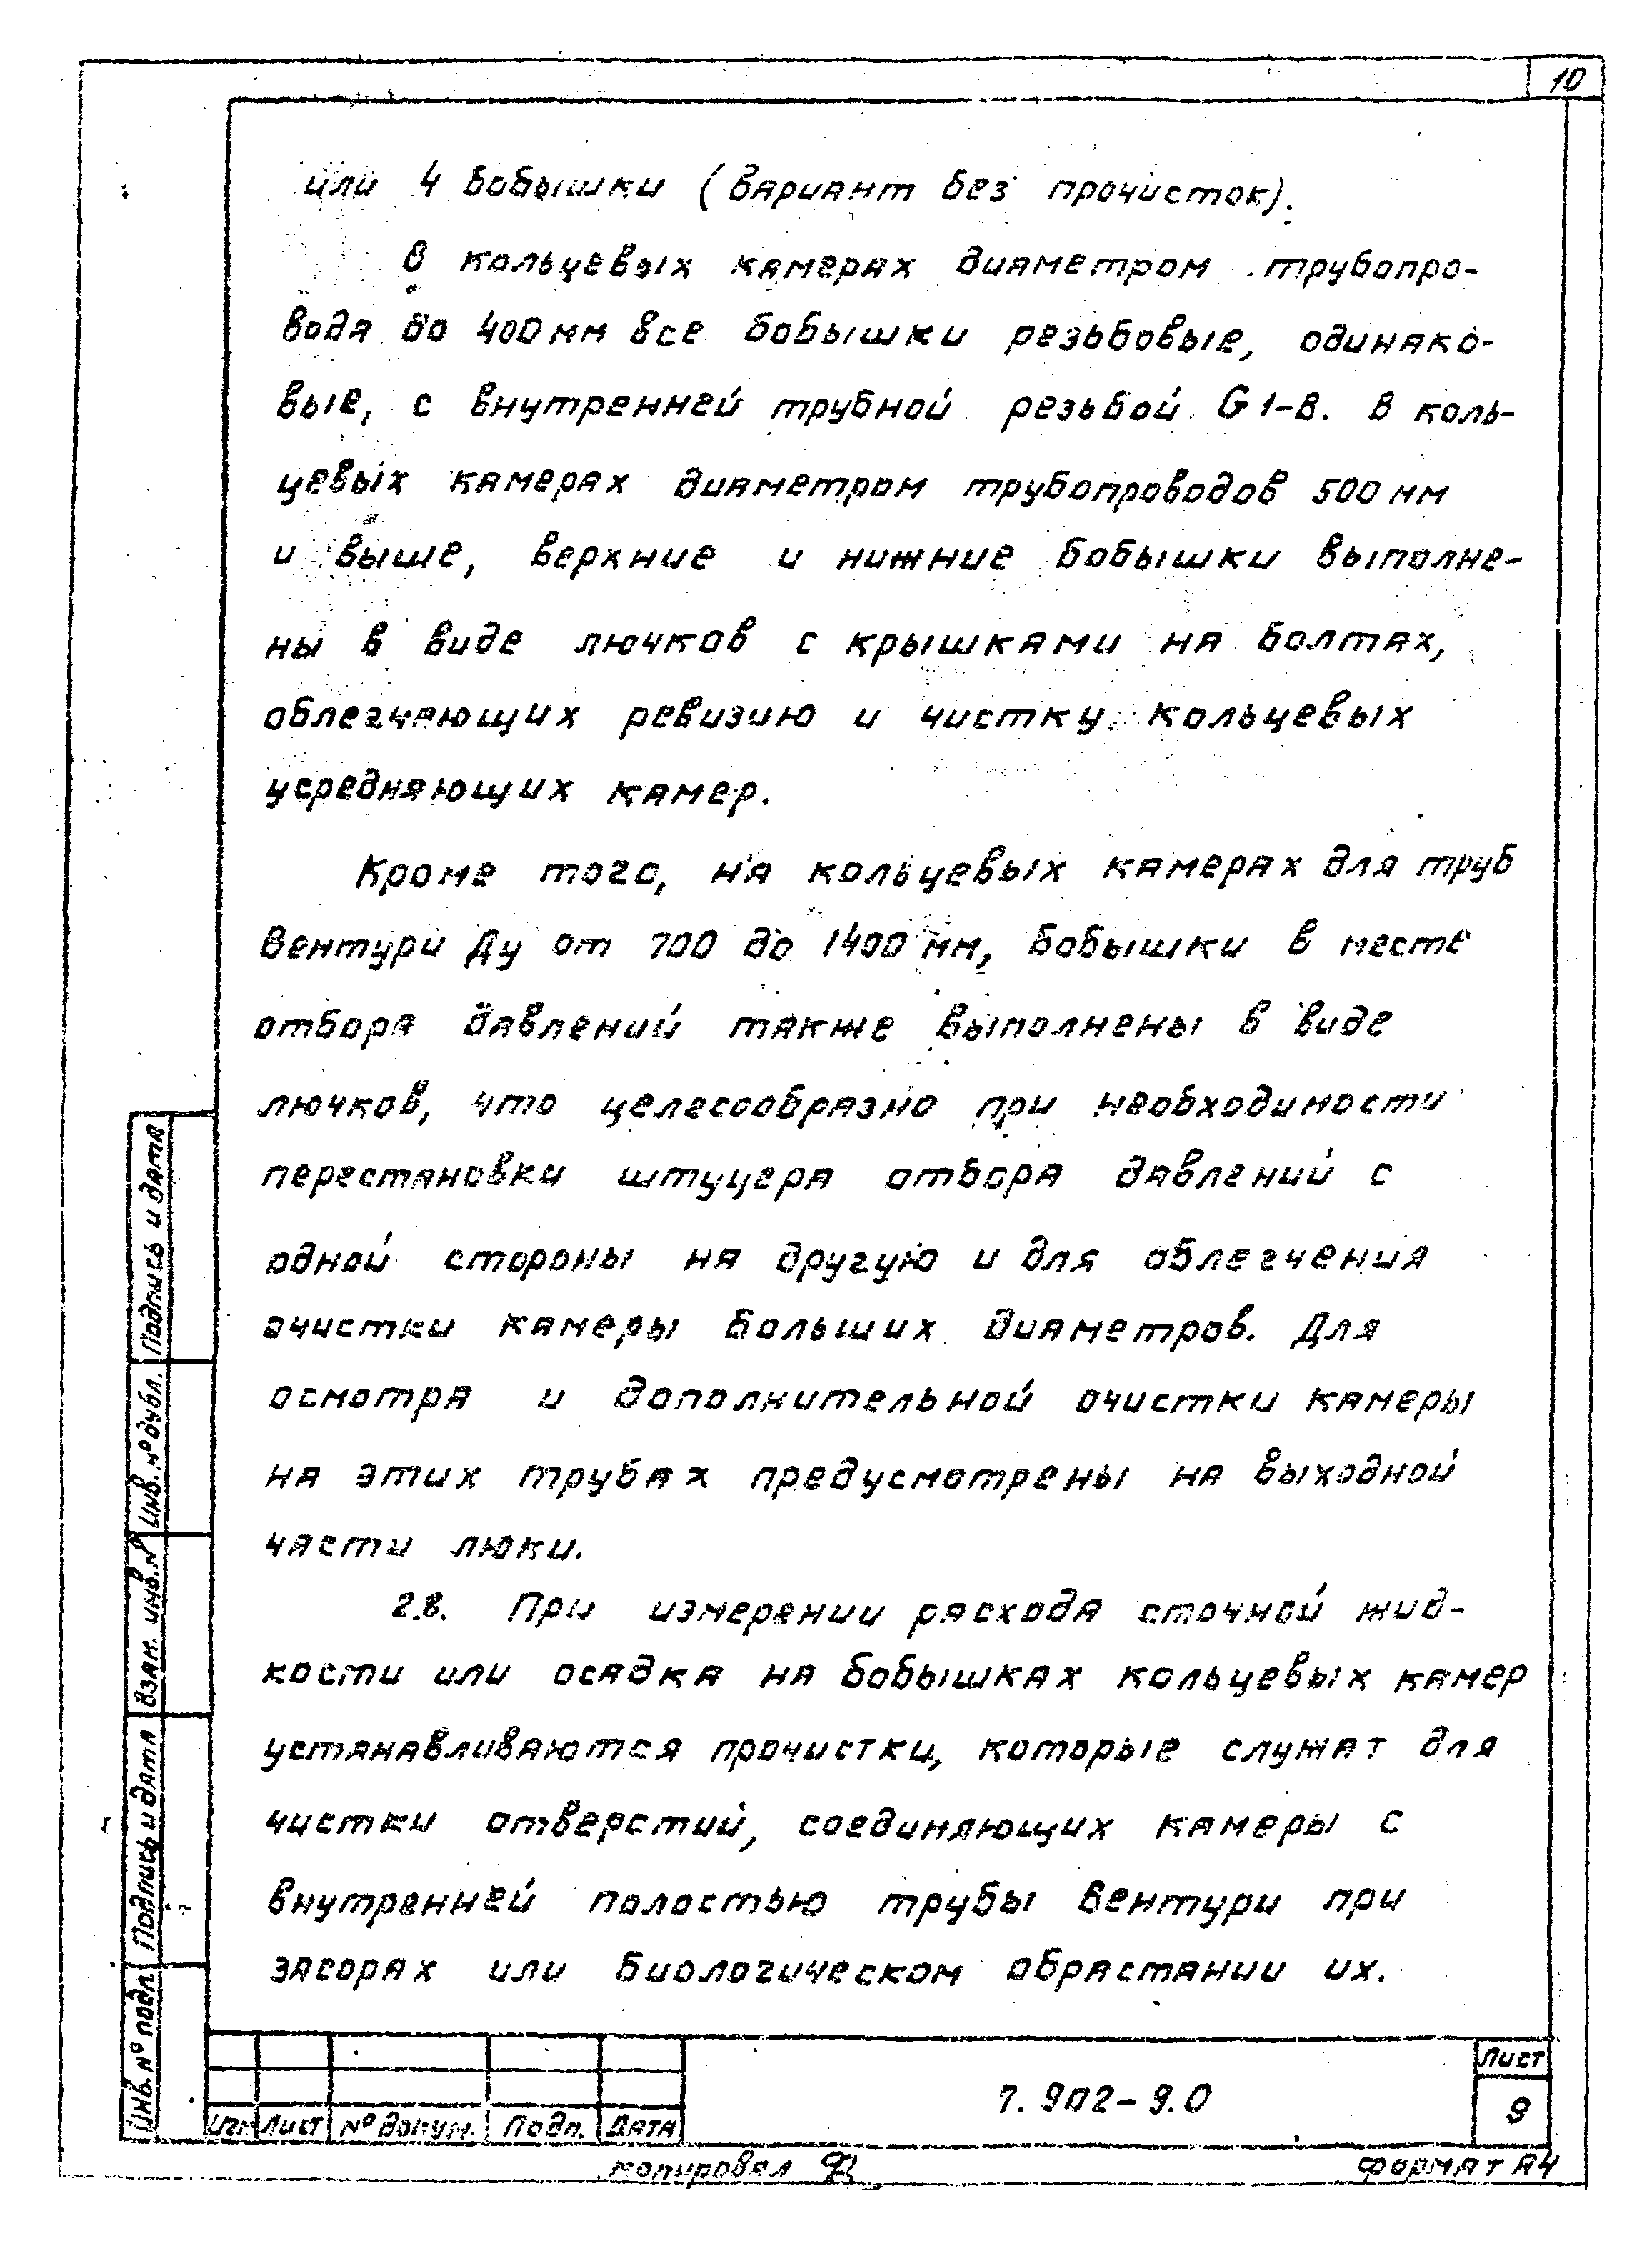 10
или 4 бобышки (вариант без прочисток).
В кольцевых камерах диаметром трубопро-
вода до 400 мм все бобышки резьбовые, одинако-
вые, с внутренней трубной резьбой G 1-В. В коль-
цевых камерах диаметром трубопроводов 500 мм
и выше, верхние и нижние бобышки выполне-
ны в виде лючков с крышками на болтах,
облегчающих ревизию и чистку кольцевых
усредняющих камер.
Кроме того, на кольцевых камерах для труб
Вентури Ду от 700 до 1400 мм, бобышки в месте
отбора давлений также выполнены в виде
лючков, что целесообразно при необходимости
перестановки штуцера отбора давлений с
одной стороны на другую и для облегчения
очистки камеры больших диаметров. Для
осмотра и дополнительной очистки камеры
на этих трубах предусмотрены на выходной
части люки.
2.8. При измерении расхода сточной жид-
кости или осадка на бобышках кольцевых камер
устанавливаются прочистки, которые служат для
чистки отверстий, соединяющих камеры с
внутренней полостью трубы Вентури при
засорах или биологическом обрастании их.
Подпись и дата
Инв. № дубл.
Взам. инв. №
Подпись и дата
Инв. № подл.
Изм Лист № докум. Подп. Дата
7.902-9.0
Лист
9
Копировал
Формат А4